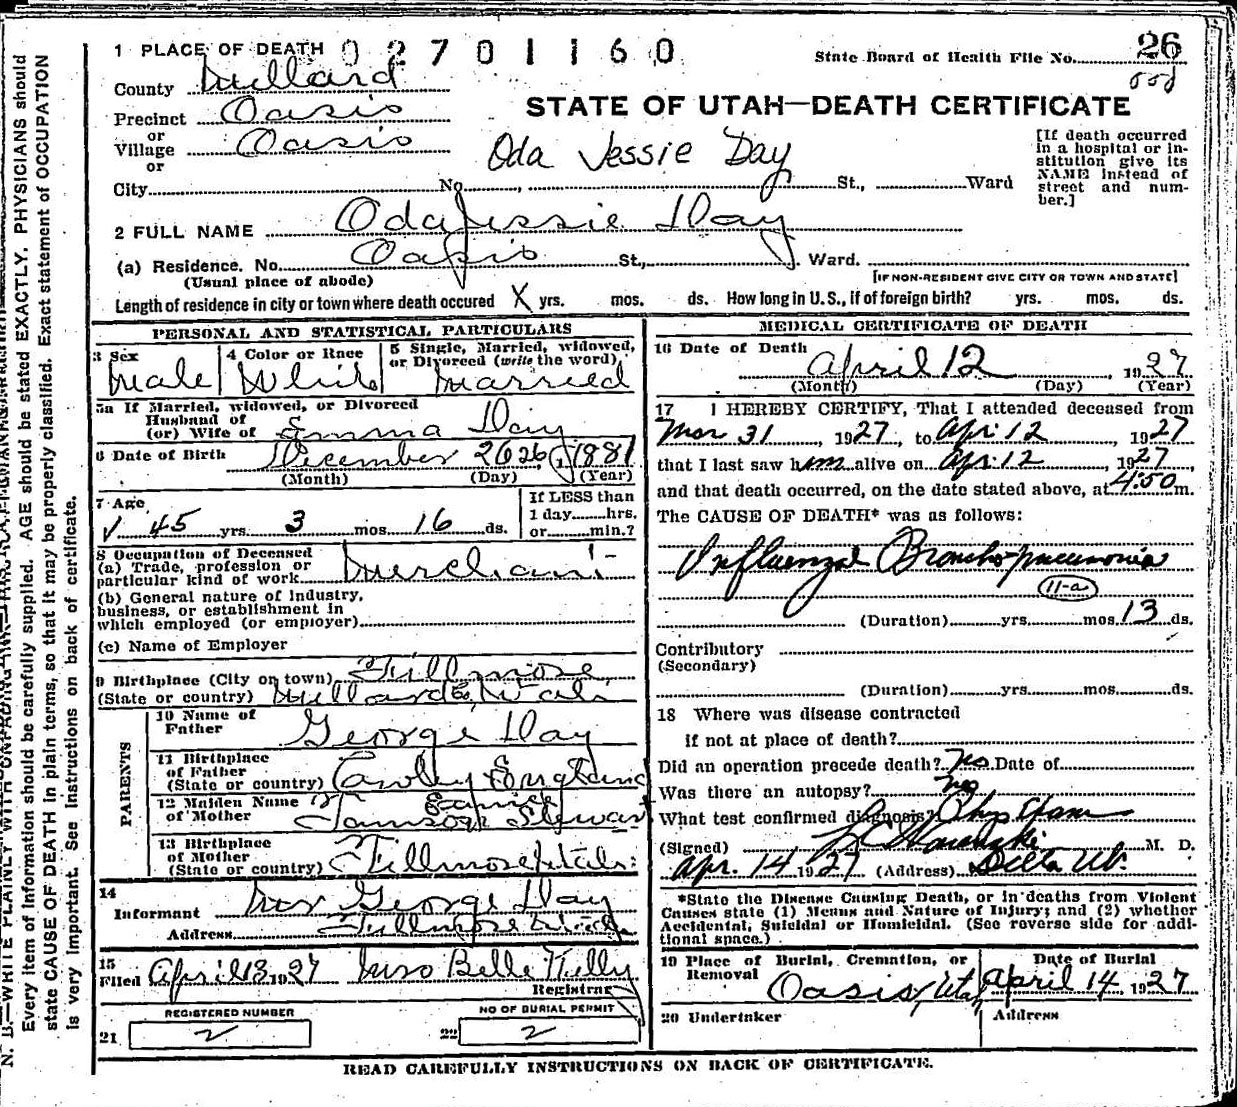 1 PLACE OF DEATH 02701160
State Board of Health File No. 26
County Millard
STATE OF UTAH—DEATH CERTIFICATE
Precinct Oasis
or
Village Oasis
or
Oda Jessie Day
[If death occurred in a hospital or institution give its NAME instead of street and number.]
City No. St., Ward
2 FULL NAME Oda Jessie Day
(a) Residence. No. Oasis St., Ward.
(Usual place of abode) [IF NON-RESIDENT GIVE CITY OR TOWN AND STATE]
Length of residence in city or town where death occured X yrs. mos. ds. How long in U. S., if of foreign birth? yrs. mos. ds.
PERSONAL AND STATISTICAL PARTICULARS
3 Sex 4 Color or Race 5 Single, Married, widowed,
or Divorced (write the word)
Male White Married
5a If Married, widowed, or Divorced
Husband of
(or) Wife of Emma Day
6 Date of Birth December 26 26 1881
(Month) (Day) (Year)
7 Age If LESS than
45 yrs. 3 mos. 16 ds. 1 day hrs.
or min.?
8 Occupation of Deceased
(a) Trade, profession or
particular kind of work Merchant
(b) General nature of Industry,
business, or establishment in
which employed (or employer)
(c) Name of Employer
9 Birthplace (City or town) Fillmore,
(State or country) Millard Co, Utah
PARENTS
10 Name of
Father George Day
11 Birthplace
of Father
(State or country) England
12 Maiden Name
of Mother
13 Birthplace
of Mother
(State or country) Fillmore Utah
14
Informant George Day
Address Fillmore Utah
15
Filed April 13 1927 Miss Belle Kelly
Registrar
REGISTERED NUMBER NO OF BURIAL PERMIT
21 2 22 2
MEDICAL CERTIFICATE OF DEATH
16 Date of Death
April 12, 1927
(Month) (Day) (Year)
17 I HEREBY CERTIFY, That I attended deceased from
Mar 31, 1927, to Apr 12, 1927
that I last saw him alive on Apr 12, 1927,
and that death occurred, on the date stated above, at 4:50 m.
The CAUSE OF DEATH* was as follows:
Influenzal Broncho-pneumonia
11-a
(Duration) yrs. mos. 13 ds.
Contributory
(Secondary)
(Duration) yrs. mos. ds.
18 Where was disease contracted
if not at place of death?
Did an operation precede death? No Date of
Was there an autopsy? No
What test confirmed diagnosis? Phys Exam
(Signed) M. D.
Apr. 14 1927 (Address) Delta Ut.
*State the Disease Causing Death, or in deaths from Violent
Causes state (1) Means and Nature of Injury; and (2) whether
Accidental, Suicidal or Homicidal. (See reverse side for addi-
tional space.)
19 Place of Burial, Cremation, or Date of Burial
Removal
Oasis, Utah April 14, 1927
20 Undertaker Address
READ CAREFULLY INSTRUCTIONS ON BACK OF CERTIFICATE.
Every item of Information should be carefully supplied. AGE should be stated EXACTLY. PHYSICIANS should
state CAUSE OF DEATH in plain terms, so that it may be properly classified. Exact statement of OCCUPATION
is very important. See Instructions on back of certificate.